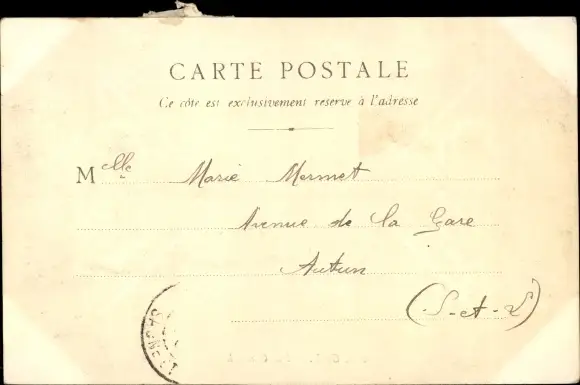 CARTE POSTALE
Ce côté est exclusivement reserve à l'adresse
Melle Marie Mermet
Avenue de la Gare
Autun
(S-et-L)